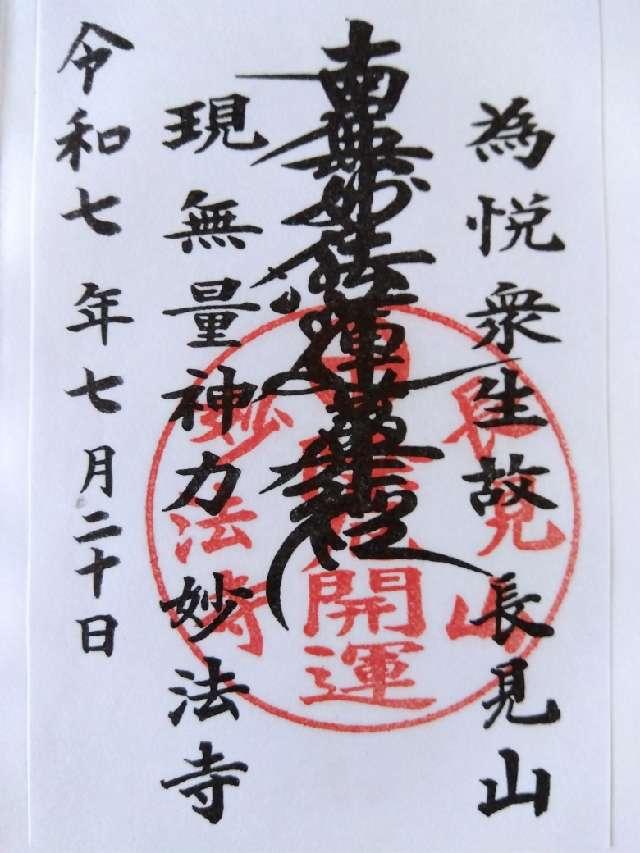 為悦衆生故 長見山
南無妙法蓮華経
現無量神力 妙法寺
令和七年七月二十日
長見山
開運
妙法寺